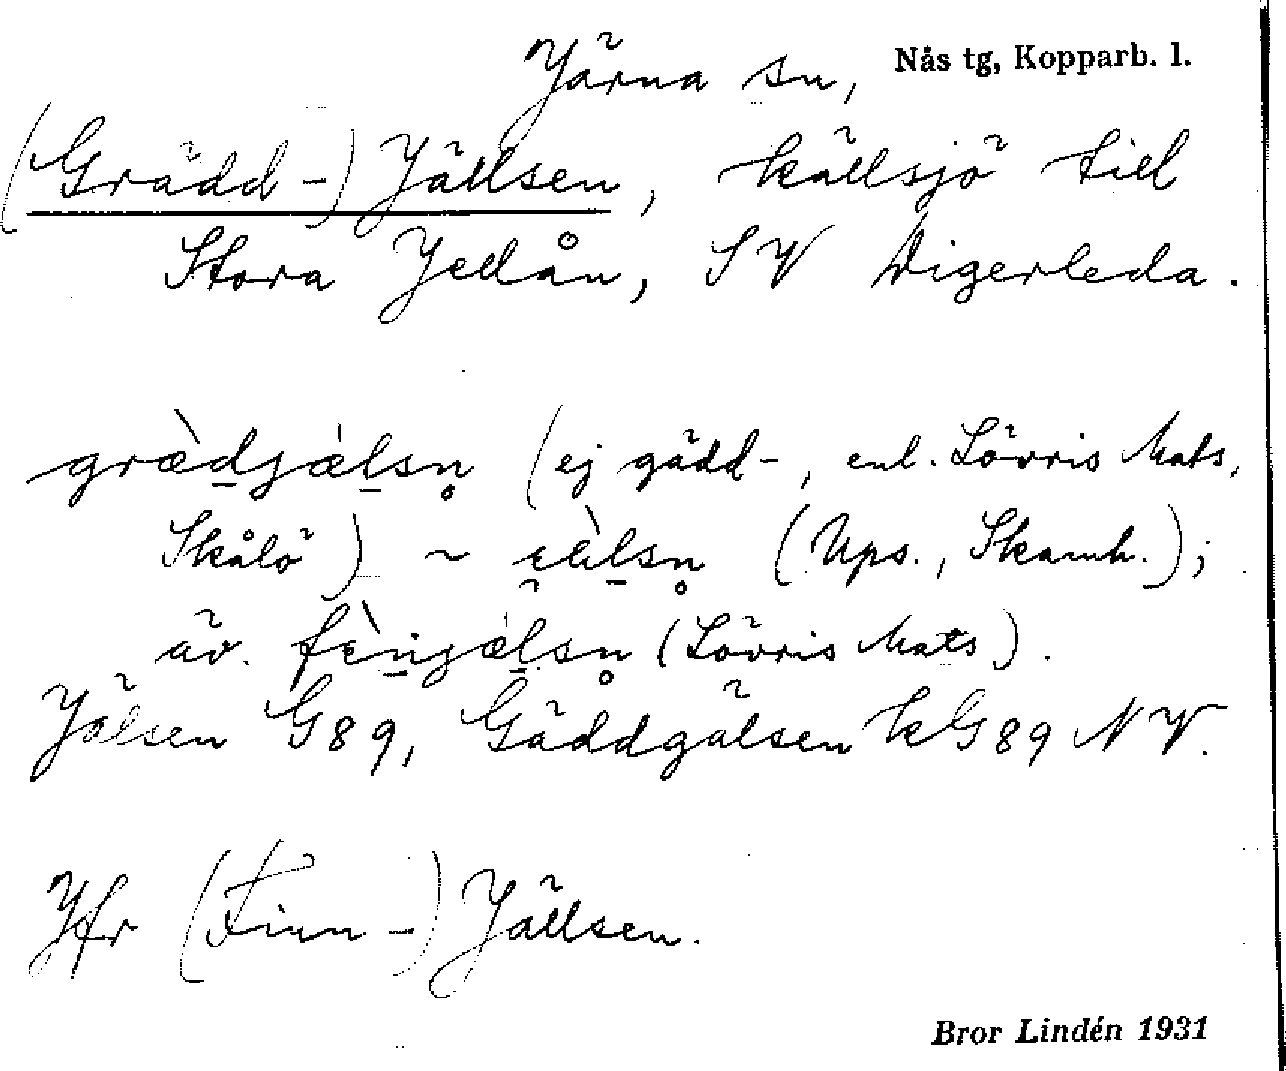 Järna sn, Nås tg, Kopparb. l.
(Grädd-) Jällsen, källsjö till
Stora Jellån, SV Digerleda.
grædjælsn̥ (ej gädd-, enl. Lövris Mats,
Skålö) ~ (Ups., Skamh.);
äv. (Lövris Mats).
Jälsen G89, Gäddgälsen kG89 NV.
Jfr (Finn-) Jällsen.
Bror Lindén 1931